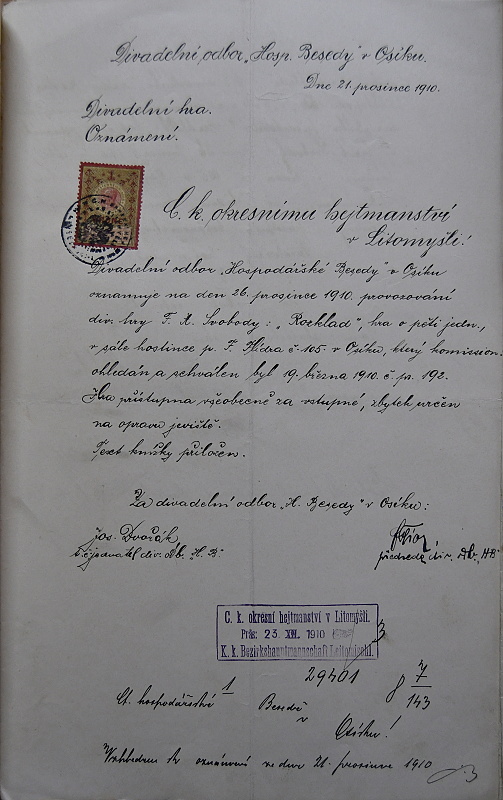 Divadelní odbor „Hosp. Besedy" v Osíku.
Dne 21. prosince 1910.
Divadelní hra.
Oznámení.
C. k. okresnímu hejtmanství
v Litomyšli!
Divadelní odbor „Hospodářské Besedy" v Osíku
oznamuje na den 26. prosince 1910. provozování
div. hry F. X. Svobody: „Rozklad", hra o pěti jedn.,
v sále hostince p. F. č. 105 v Osíku, který komission.
ohledán a schválen byl 19. března 1910. č. pr. 192.
Hra přístupna všeobecně za vstupné, zbytek určen
na opravu jeviště.
Text knížky přiložen.
Za divadelní odbor „H. Besedy" v Osíku:
Jos. Dvořák
t. č. jednatel div. H. B.
předseda div. H B
C. k. okresní hejtmanství v Litomyšli.
Präs: 23. XII. 1910
K. k. Bezirkshauptmannschaft Leitomischl.
29401
8 7/143
Ct. hospodářství 1 Besedě
v
Osíku!
Vzhledem k oznámení ze dne 21. prosince 1910